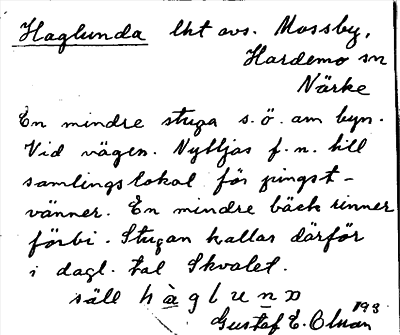 Haglunda lht avs. Mossby,
Hardemo sn
Närke
En mindre stuga s.ö. om byn.
Vid vägen. Nyttjas f.n. till
samlingslokal för pingst-
vänner. En mindre bäck rinner
förbi. Stugan kallas därför
i dagl. tal Skvalet.
säll hàglunɒ
193
Gustaf E. Olsson